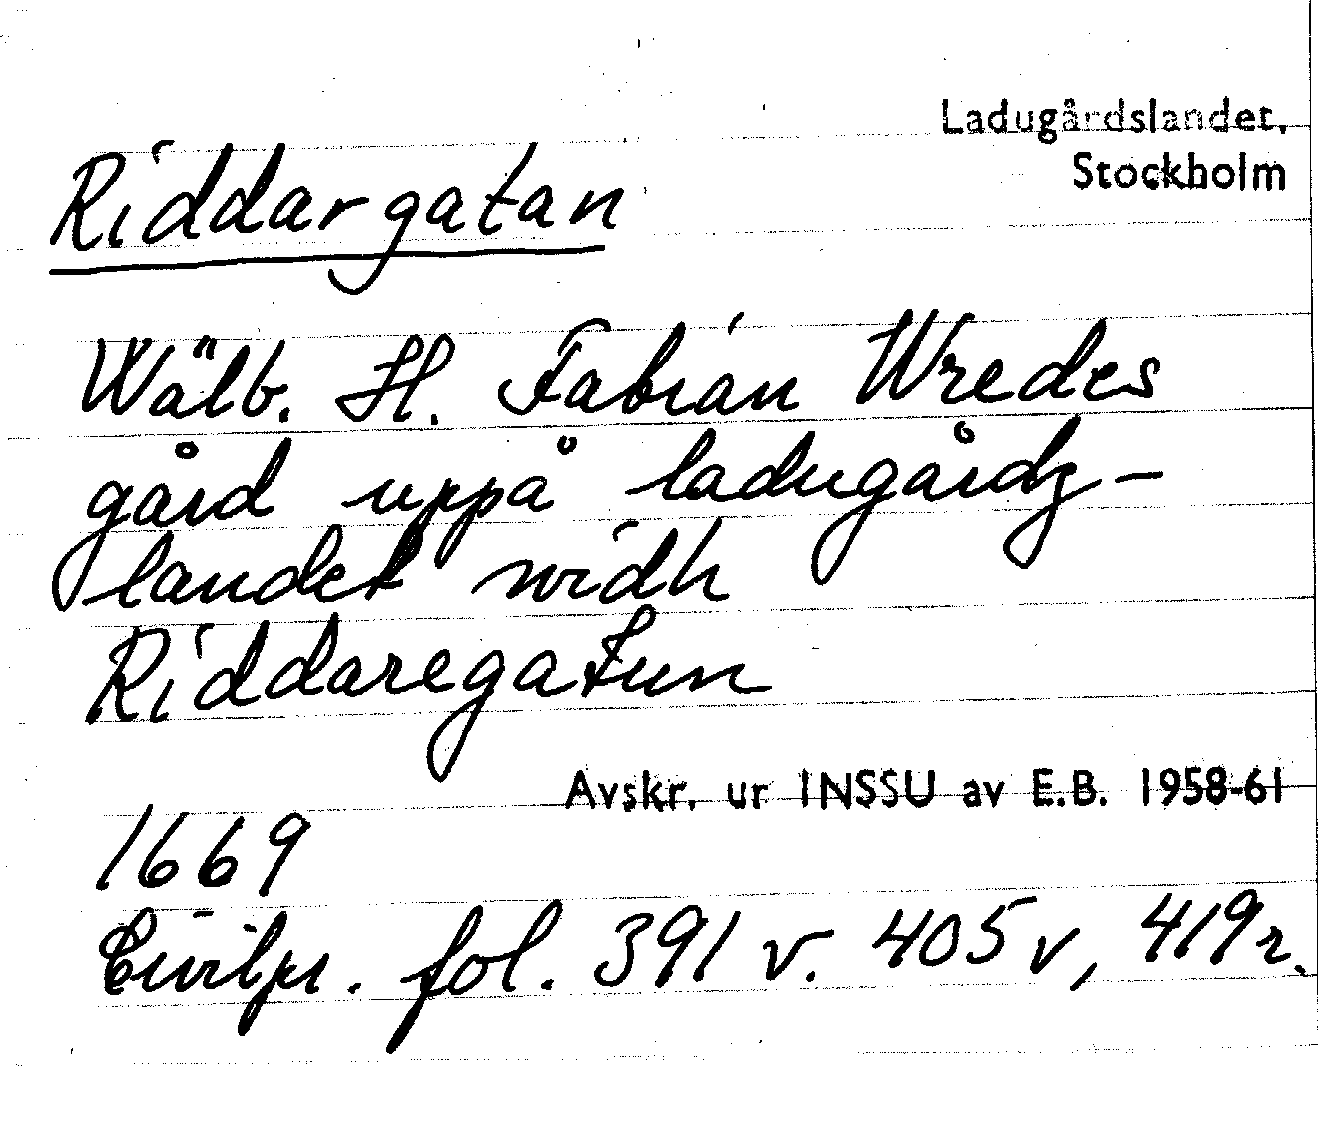 Ladugårdslandet,
Stockholm
Riddargatan
Wälb. H. Fabian Wredes
gård uppå ladugårdz-
landet widh
Riddaregatun
Avskr. ur INSSU av E.B. 1958-61
1669
Civilpr. fol. 391 v. 405 v, 419 r.